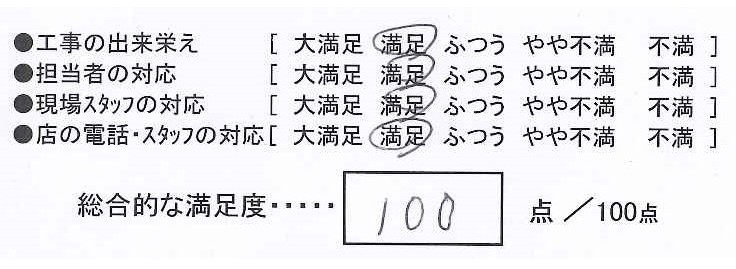 ●工事の出来栄え [ 大満足 満足 ふつう やや不満 不満 ]
●担当者の対応 [ 大満足 満足 ふつう やや不満 不満 ]
●現場スタッフの対応 [ 大満足 満足 ふつう やや不満 不満 ]
●店の電話・スタッフの対応[ 大満足 満足 ふつう やや不満 不満 ]
総合的な満足度・・・・・ 100 点 ／100点